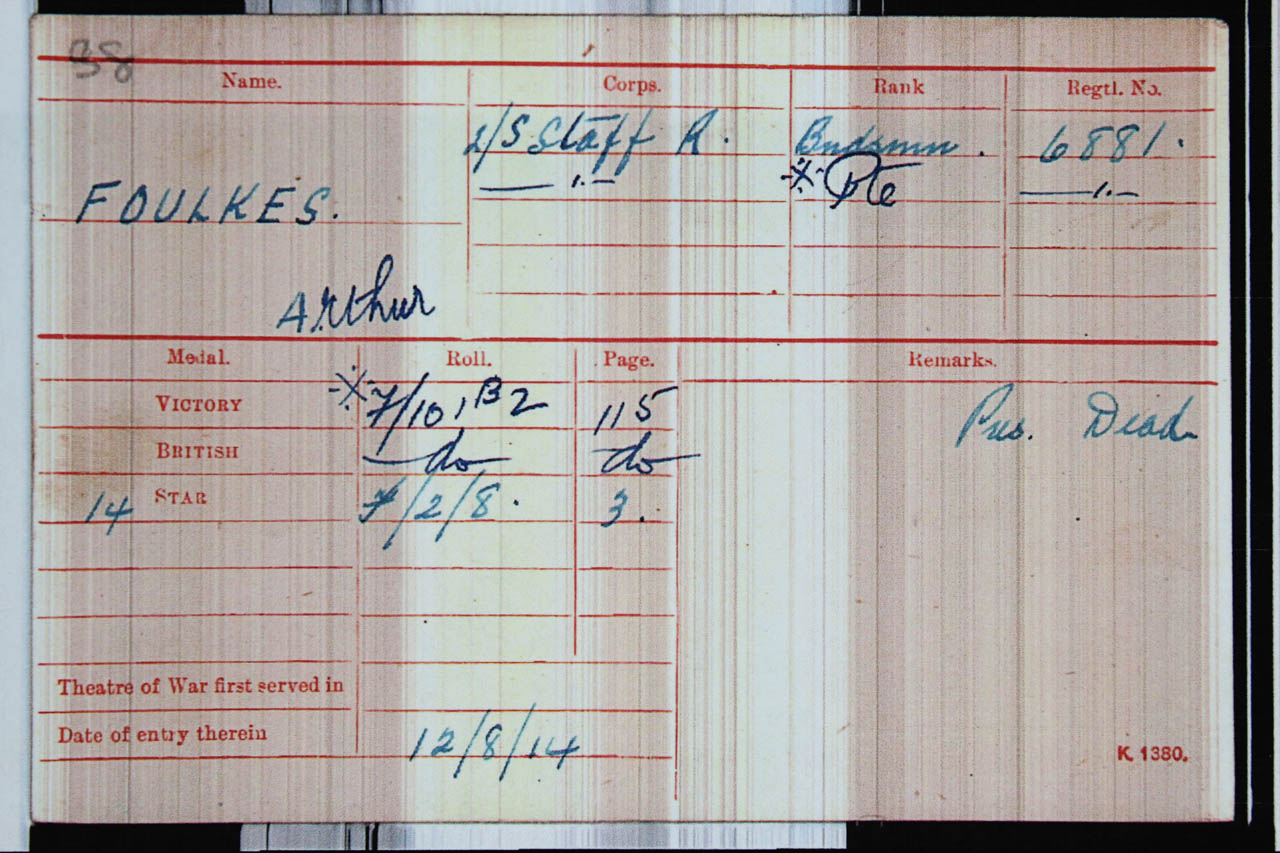 38
Name. Corps. Rank Regtl. No.
2/S Staff R. Bndsmn. 6881.
FOULKES. —〃— ※ Pte —〃—
Arthur
Medal. Roll. Page. Remarks.
VICTORY ※ 7/101B2 115 Pres. Dead
BRITISH do do
14 STAR 7/2/8. 3.
Theatre of War first served in
Date of entry therein 12/8/14
K. 1380.